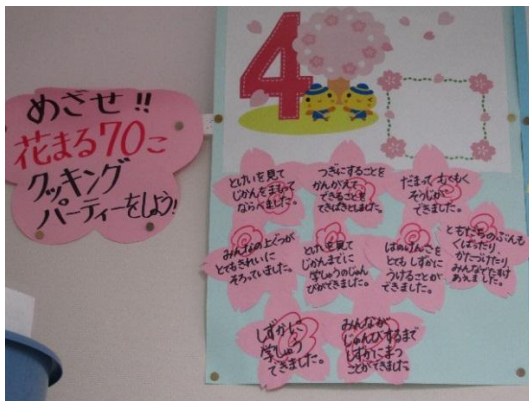 めざせ!!
花まる70こ
クッキング
パーティーをしよう!
4
とけいを見て
じかんをまもって
ならべました。
つぎにすることを
かんがえて
できることを
てきぱきとしました。
だまってすてもく
そうじが
できました。
みんなの上ぐつが
とてもきれいに
そろっていました。
とけいを見て
じかんまでに
学しゅうのじゅん
びができました。
はのけんさを
とてもしずかに
うけることが
できました。
ともだちのぶんも
くばったり
かたづけたり
みんなでたすけ
あえました。
しずかに
学しゅう
できました。
みんなが
じゅんびするまで
しずかにまつ
ことができました